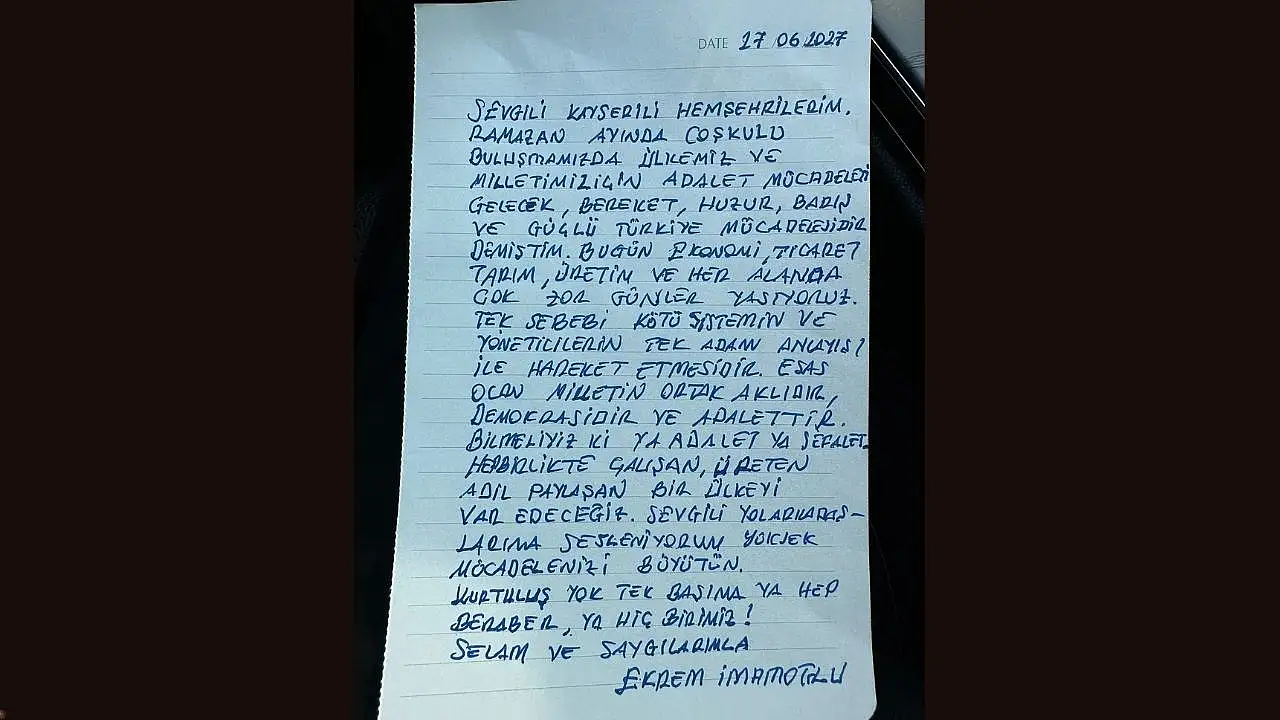 DATE 27 06 2027
SEVGİLİ KAYSERİLİ HEMŞEHRİLERİM.
RAMAZAN AYINDA COŞKULU
BULUŞMAMIZDA ÜLKEMİZ VE
MİLLETİMİZİÇİN ADALET MÜCADELESİ
GELECEK, BEREKET, HUZUR, BARIŞ
VE GÜÇLÜ TÜRKİYE MÜCADELESİDİR
DEMİŞTİM. BUGÜN EKONOMİ, TİCARET
TARIM, ÜRETİM VE HER ALANDA
ÇOK ZOR GÜNLER YAŞIYORUZ.
TEK SEBEBİ KÖTÜ SİSTEMİN VE
YÖNETİCİLERİN TEK ADAM ANLAYIŞI
İLE HAREKET ETMESİDİR. ESAS
OLAN MİLLETİN ORTAK AKLIDIR,
DEMOKRASİDİR VE ADALETTİR.
BİLMELİYİZ Kİ YA ADALET YA SEFALET.
HEPBİRLİKTE ÇALIŞAN, ÜRETEN
ADİL PAYLAŞAN BİR ÜLKEYİ
VAR EDECEĞİZ. SEVGİLİ YOLARKADAŞ-
LARIMA SESLENİYORUM YÜKSEK
MÜCADELENİZİ BÜYÜTÜN.
KURTULUŞ YOK TEK BAŞIMA YA HEP
BERABER, YA HİÇ BİRİMİZ!
SELAM VE SAYGILARIMLA
EKREM İMAMOĞLU